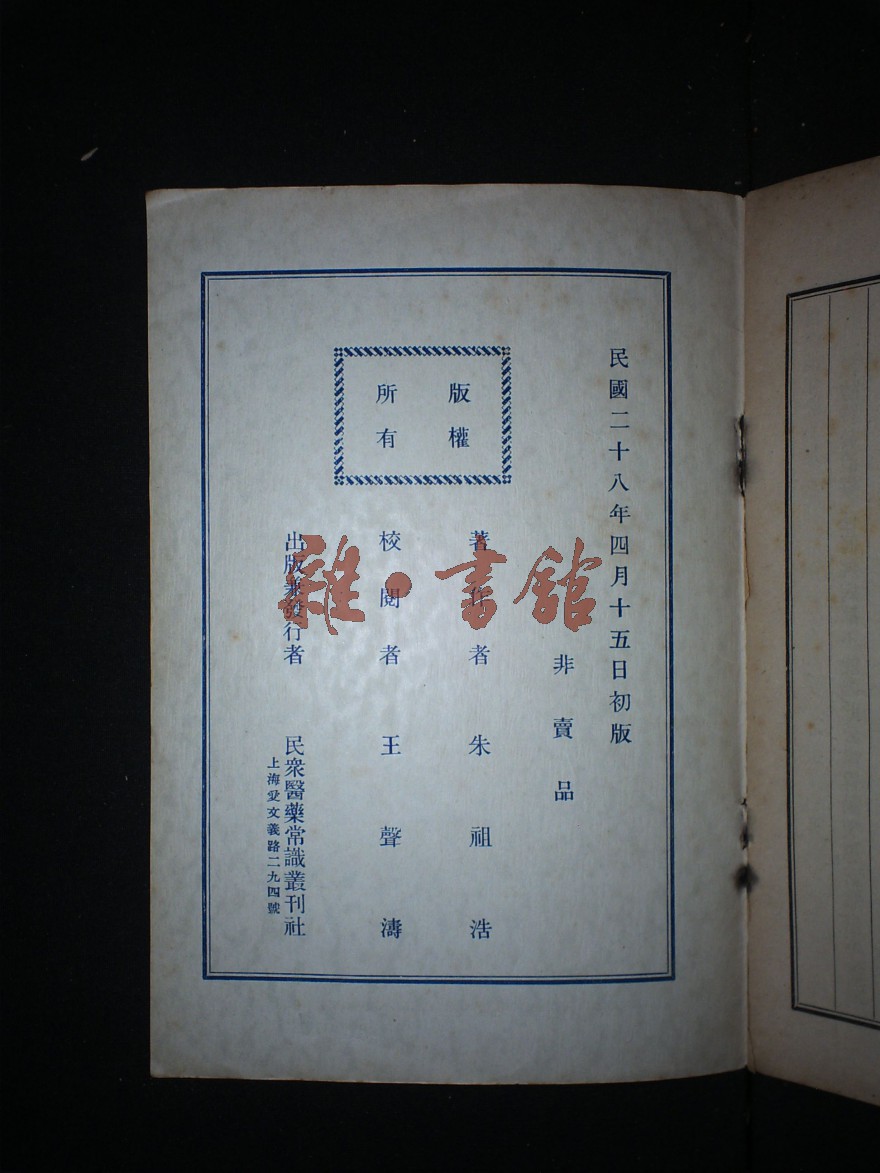 民國二十八年四月十五日初版
非賣品
版權
所有
著作者 朱祖浩
校閱者 王聲濤
出版兼發行者 民衆醫藥常識叢刊社
上海愛文義路二九四號
雜·書館